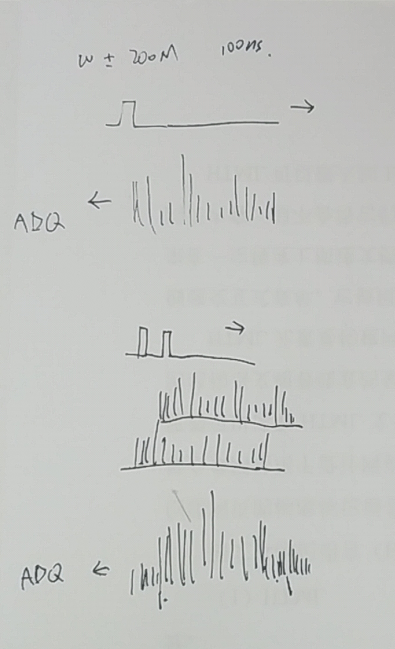 w ± 200M 100ns.
ADQ
ADQ